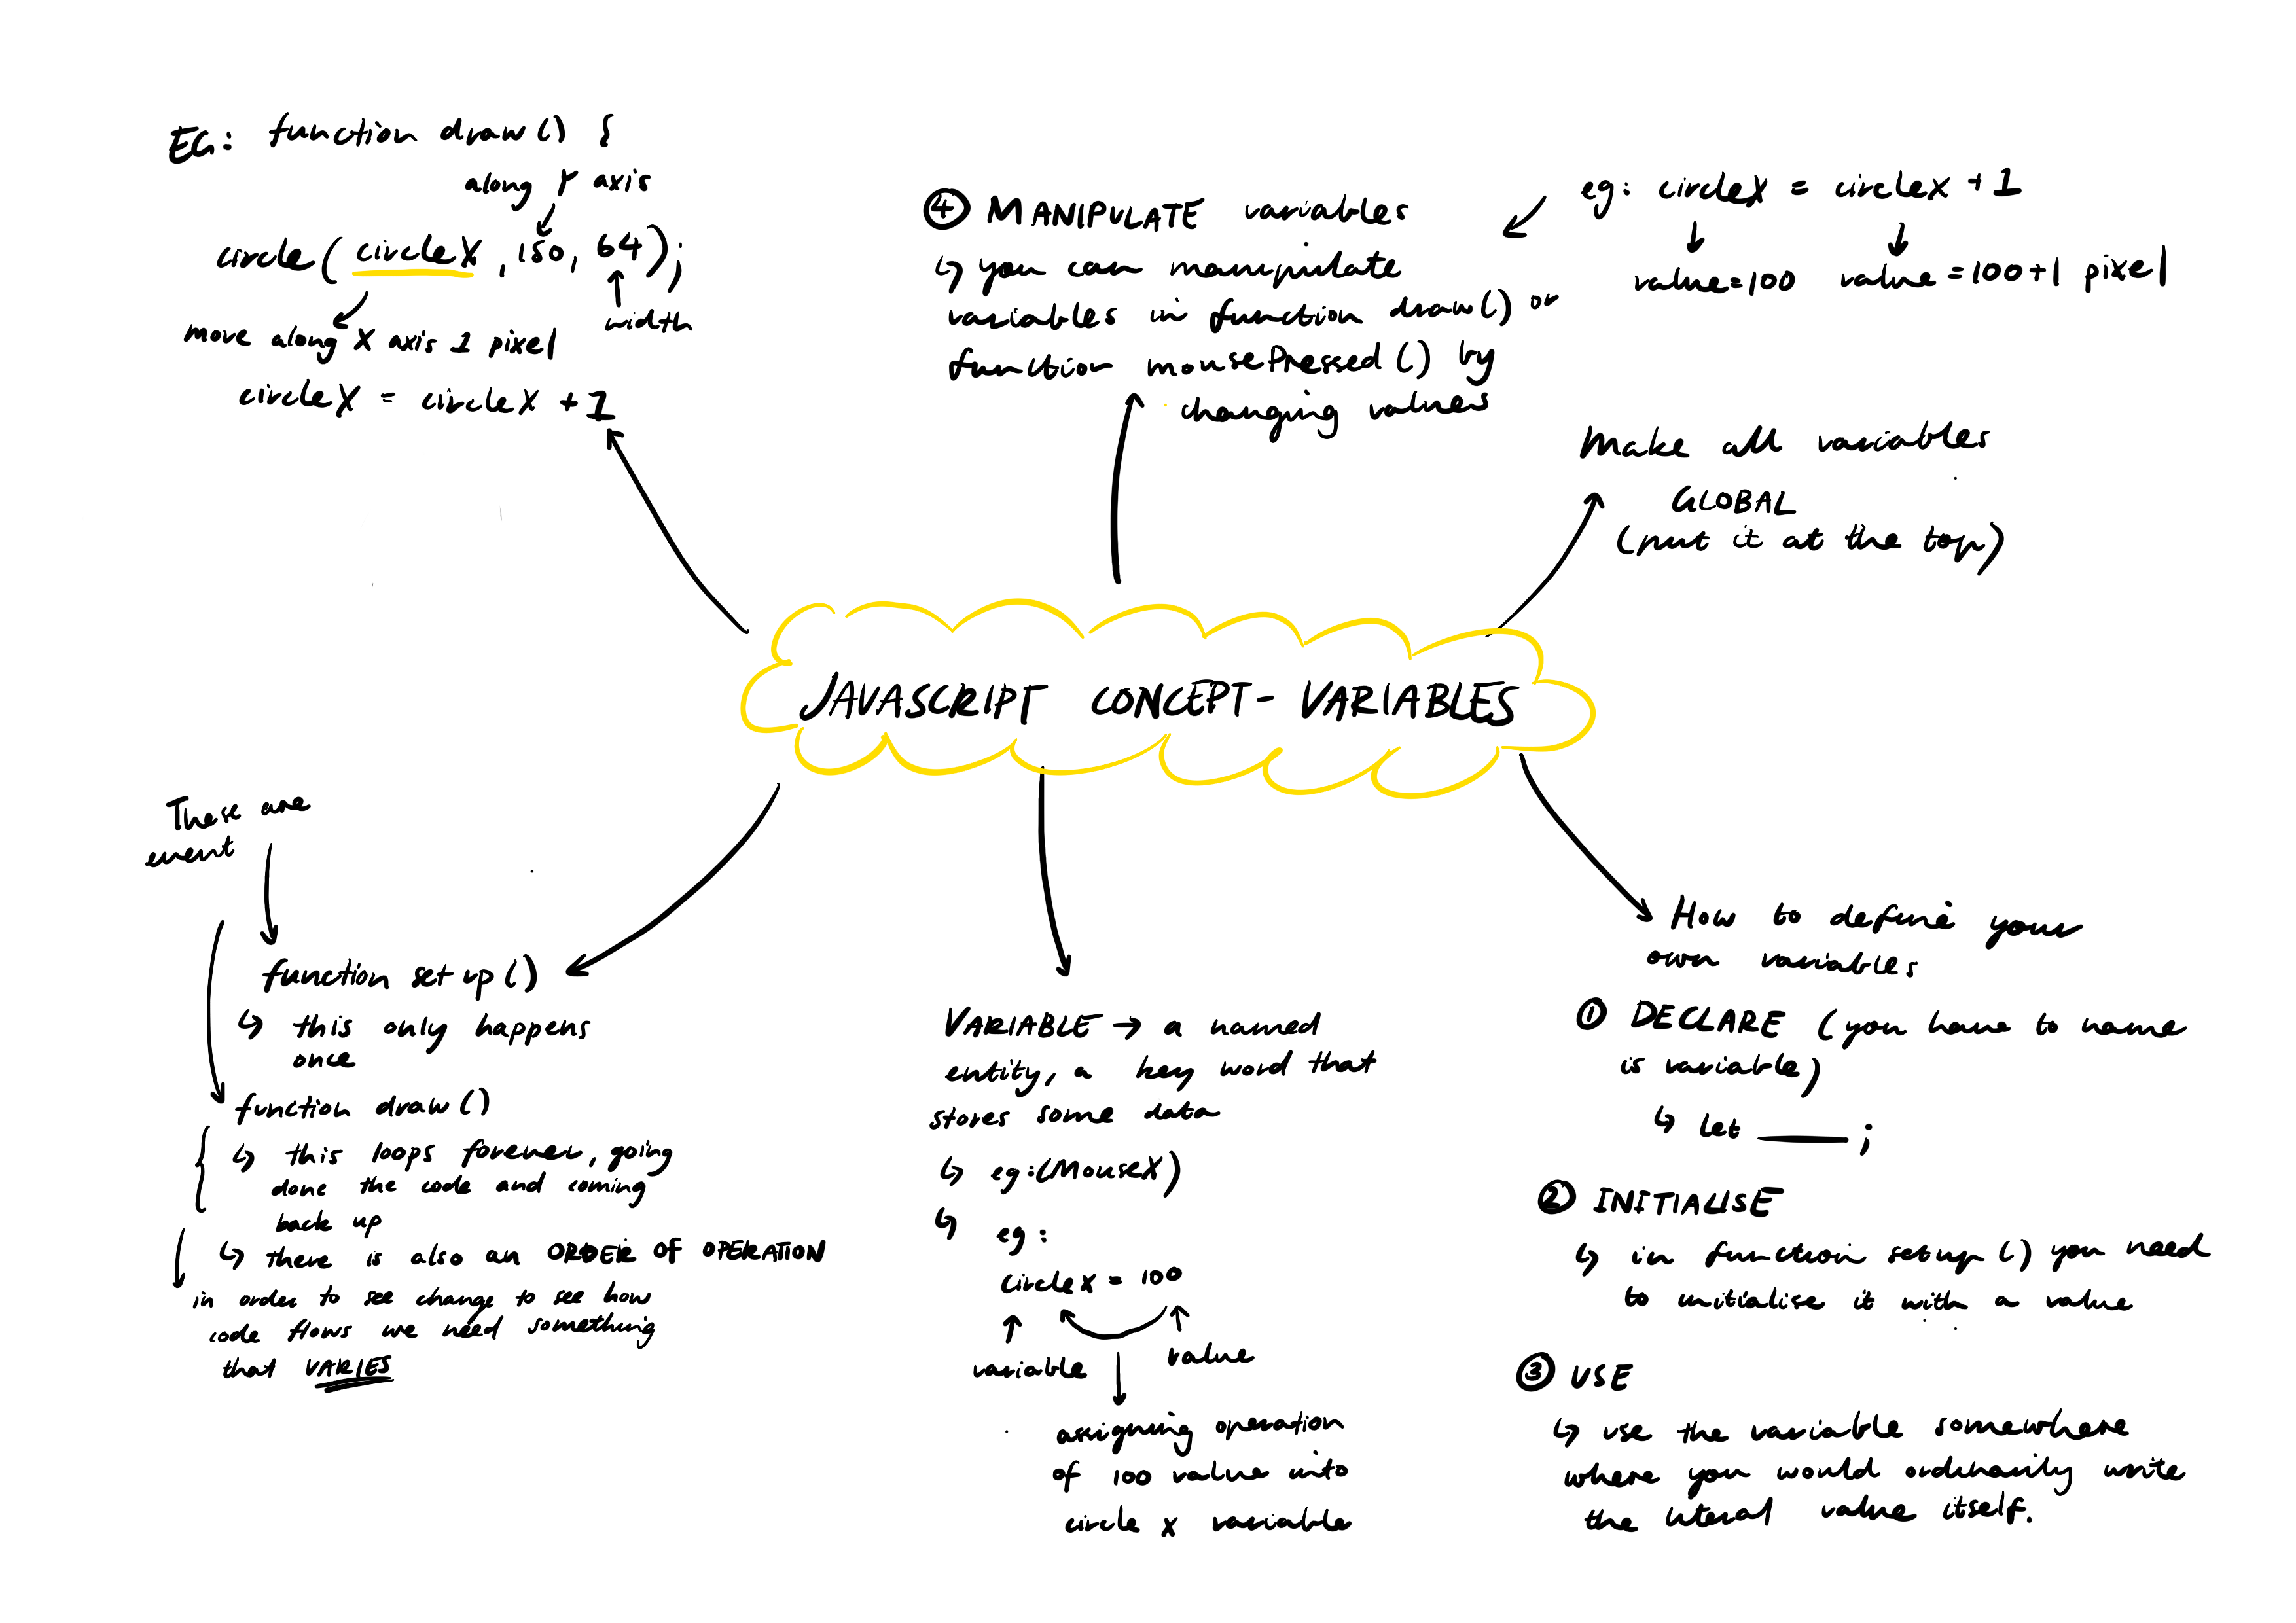 EG: function draw() {
along Y axis
circle( circleX , 150, 64);
width
move along X axis 1 pixel
circleX = circleX + 1
④ MANIPULATE variables
↳ you can manipulate
variables in function draw() or
function mousePressed() by
changing values
eg: circleX = circlex + 1
value=100 value = 100+1 pixel
Make all variables
GLOBAL
(put it at the top)
JAVASCRIPT CONCEPT - VARIABLES
These are
event
function set up()
↳ this only happens
once
function draw()
↳ this loops forever, going
done the code and coming
back up
↳ there is also an ORDER OF OPERATION
in order to see change to see how
code flows we need something
that VARIES
VARIABLE → a named
entity, a key word that
stores some data
↳ eg: (MouseX)
↳ eg:
circlex = 100
variable value
assigning operation
of 100 value into
circle x variable
How to define your
own variables
① DECLARE (you have to name
is variable)
↳ let ______ ;
② INITIALISE
↳ in function setup() you need
to initialise it with a value
③ USE
↳ use the variable somewhere
where you would ordinarily write
the literal value itself.